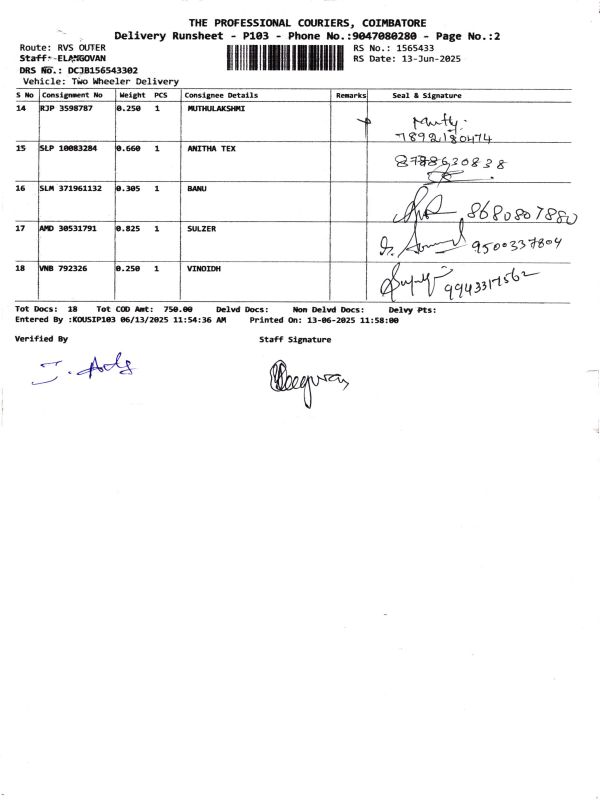 THE PROFESSIONAL COURIERS, COIMBATORE
Delivery Runsheet - P103 - Phone No.:9047080280 - Page No.:2
Route: RVS OUTER RS No.: 1565433
Staff: ELANGOVAN RS Date: 13-Jun-2025
DRS No.: DCJB156543302
Vehicle: Two Wheeler Delivery
S No Consignment No Weight PCS Consignee Details Remarks Seal & Signature
14 RJP 3598787 0.250 1 MUTHULAKSHMI
7892180474
15 SLP 10083284 0.660 1 ANITHA TEX
8778630838
16 SLM 371961132 0.305 1 BANU
8680807880
17 AMD 30531791 0.825 1 SULZER
9500337804
18 VNB 792326 0.250 1 VINOIDH
9943317562
Tot Docs: 18 Tot COD Amt: 750.00 Delvd Docs: Non Delvd Docs: Delvy Pts:
Entered By :KOUSIP103 06/13/2025 11:54:36 AM Printed On: 13-06-2025 11:58:00
Verified By Staff Signature